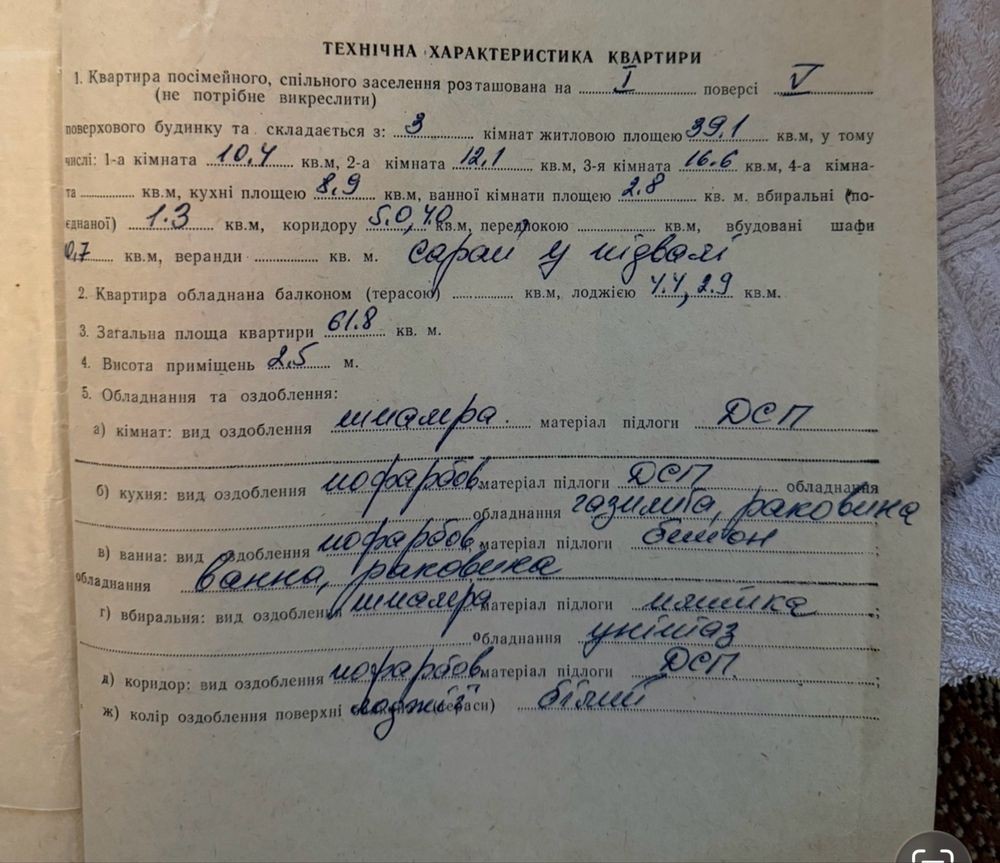 ТЕХНІЧНА ХАРАКТЕРИСТИКА КВАРТИРИ
1. Квартира посімейного, спільного заселення розташована на I поверсі V
(не потрібне викреслити)
поверхового будинку та складається з: 3 кімнат житловою площею 39,1 кв.м, у тому
числі: 1-а кімната 10,4 кв.м, 2-а кімната 12,1 кв.м, 3-я кімната 16.6 кв.м, 4-а кімна-
та кв.м, кухні площею 8,9 кв.м, ванної кімнати площею 2.8 кв. м. вбиральні (по-
єднаної) 1.3 кв.м, коридору 5.0, 4.0 кв.м, передпокою кв.м, вбудовані шафи
0,7 кв.м, веранди кв. м. сарай у підвалі
2. Квартира обладнана балконом (терасою) кв.м, лоджією 4.4, 2.9 кв.м.
3. Загальна площа квартири 61.8 кв. м.
4. Висота приміщень 2.5 м.
5. Обладнання та оздоблення:
а) кімнат: вид оздоблення шпалера матеріал підлоги ДСП
б) кухня: вид оздоблення пофарбов. матеріал підлоги ДСП обладнання
обладнання газплита, раковина
в) ванна: вид оздоблення пофарбов. матеріал підлоги бетон ;
обладнання ванна, раковина
г) вбиральня: вид оздоблення шпалера матеріал підлоги плитка ;
обладнання унітаз
д) коридор: вид оздоблення пофарбов. матеріал підлоги ДСП. ;
ж) колір оздоблення поверхні лоджії (тераси) білий